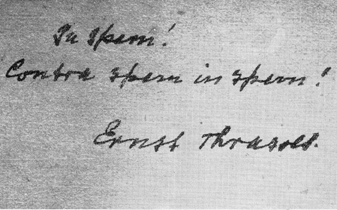 In spem!
Contra spem in spem!
Ernst Thrasolt.